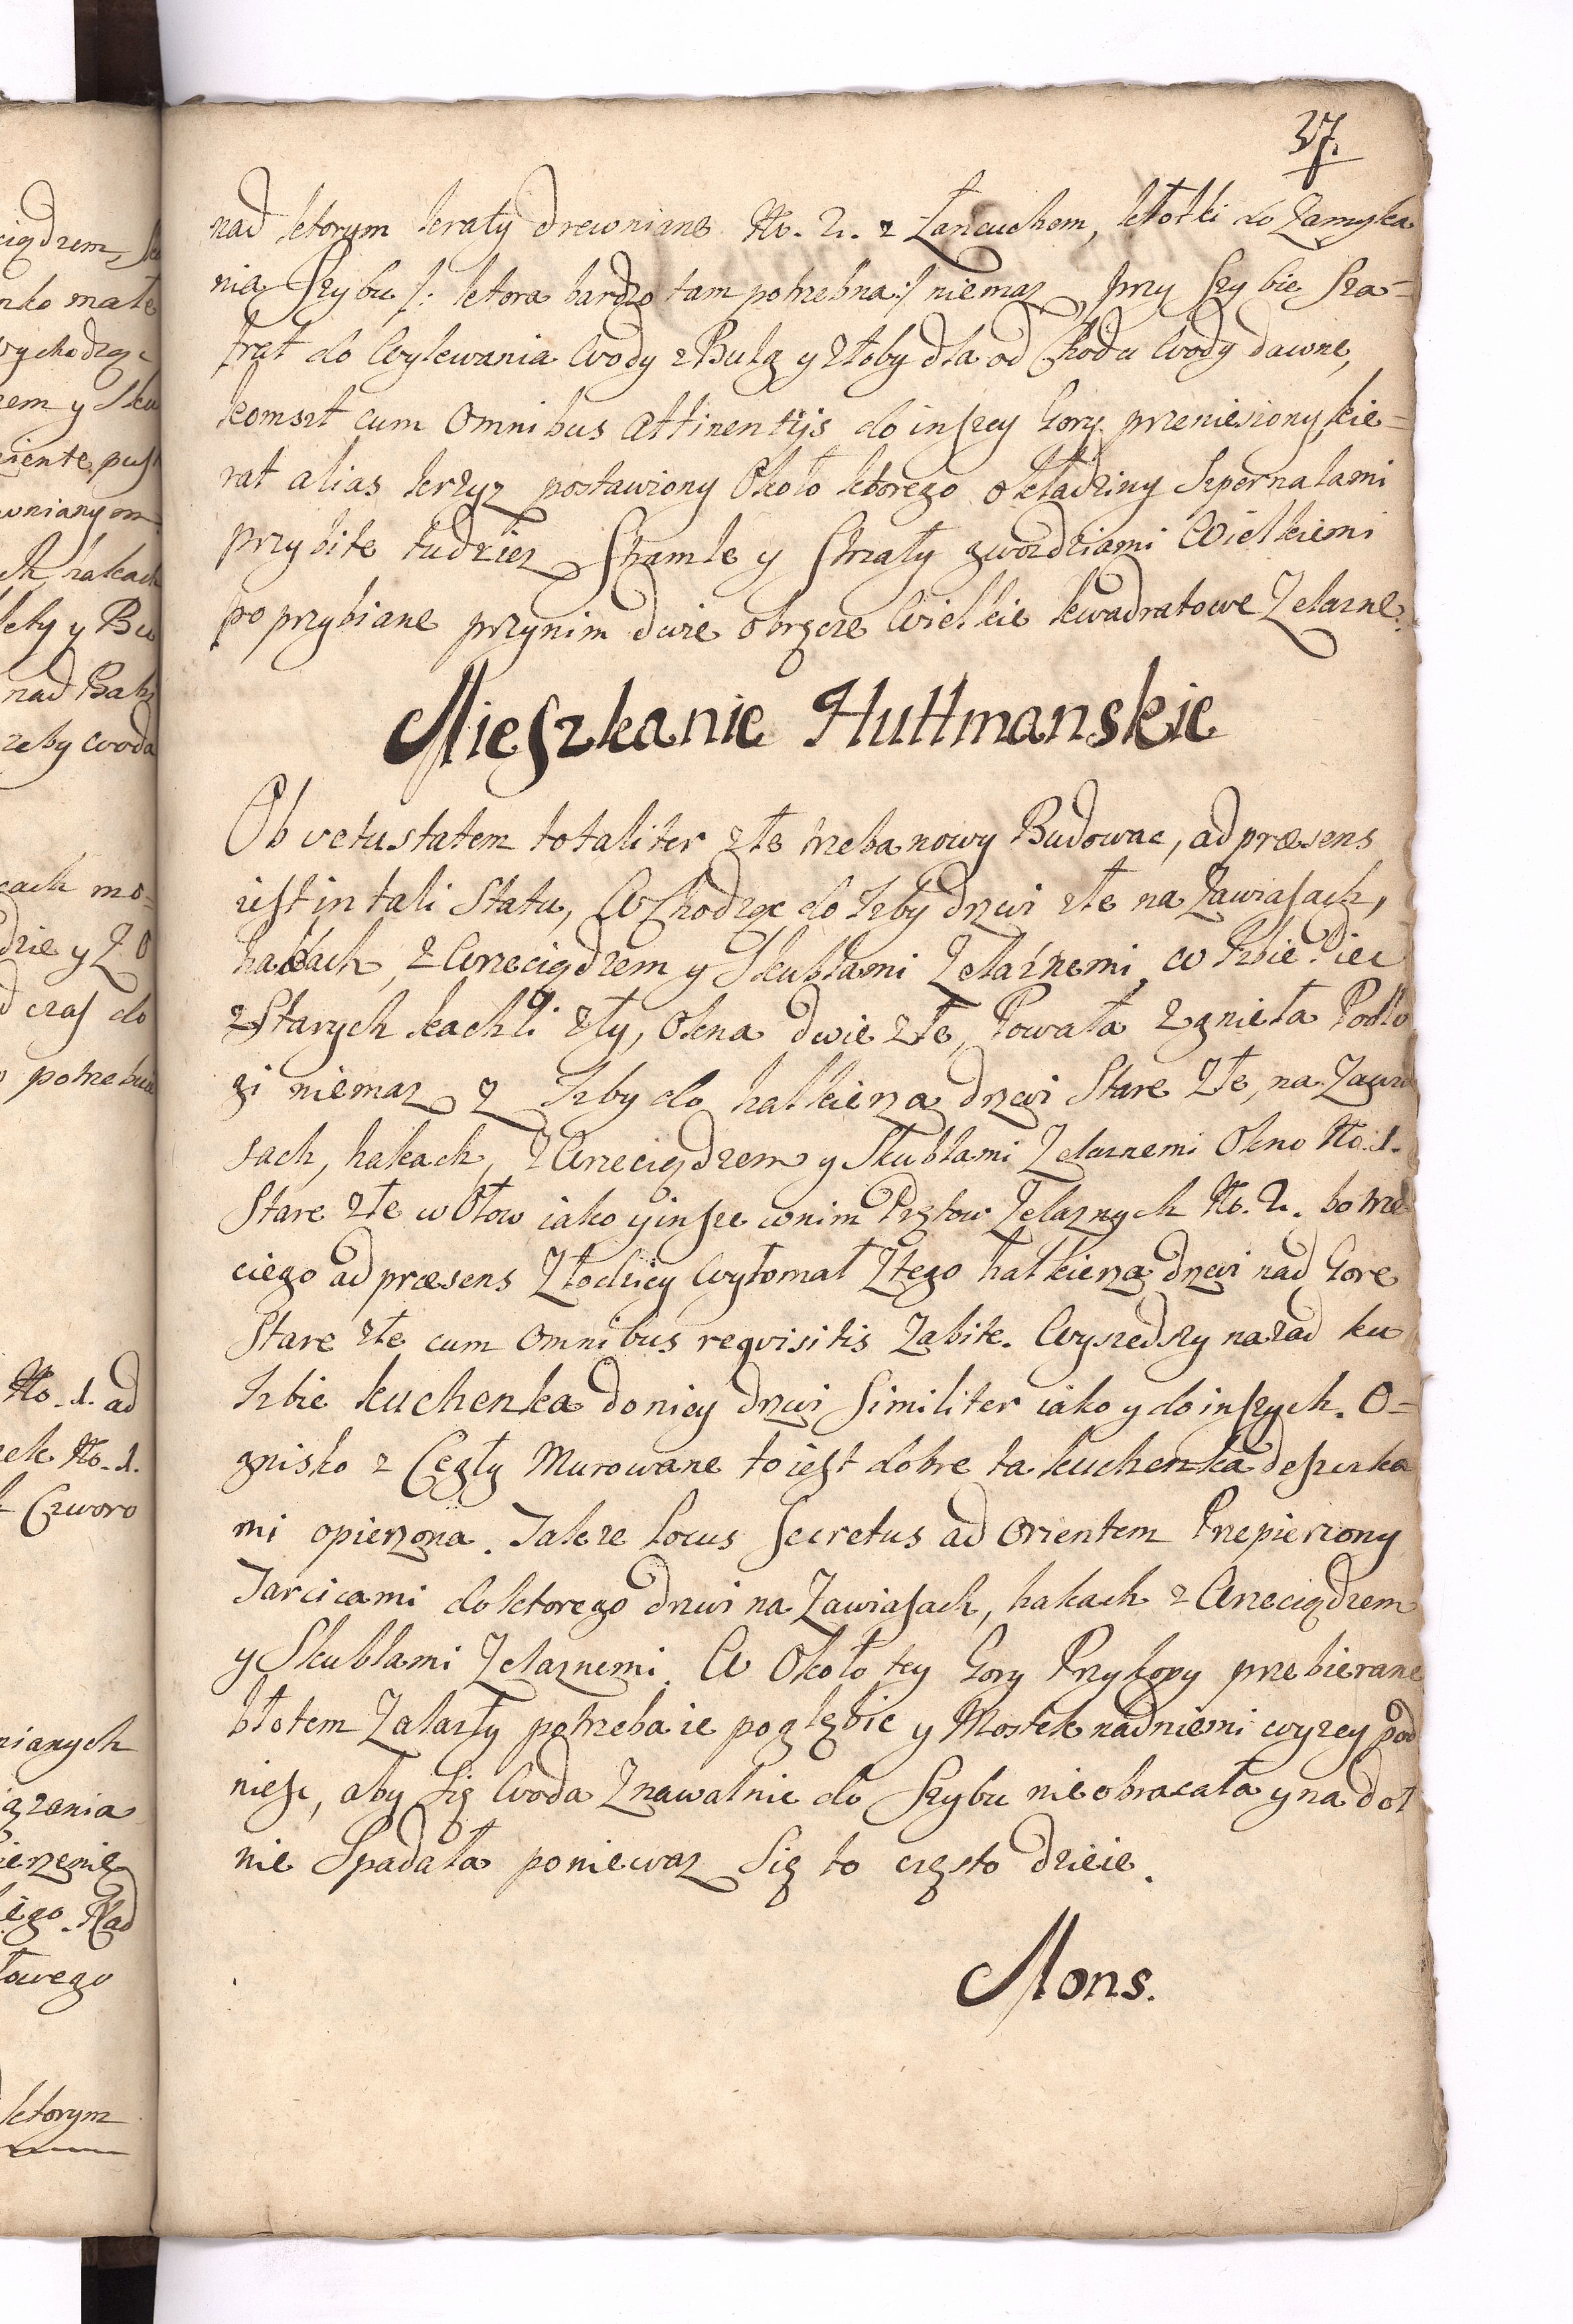 37.
nad ktorym kraty drewniane No. 2. z Łancuchem, kłotki do Zamyka
nia Szybu /: ktora bardzo tam potrzebna :/ niemasz, przy Szybie Sza=
frat do Wylewania Wody z Bulg y Złoby dla od Chodu Wody dawne,
komszt cum Omnibus Attinentijs do inszey Gory przeniesiony, kie=
rat alias krzyz postawiony Około ktorego okładziny Szpernalami
przybite tudziesz Sramle y Strzały gwozdziami Wielkiemi
poprzybiane przynim dwie obręcze Wielkie kwadratowe Zelazne.
Mieszkanie Huttmanskie
Ob vetustatem totaliter złe trzeba nowy Budowac, ad præsens
iest in tali Statu, Wchodząc do Izby drzwi złe na Zawiasach,
hakach, z Wrzeciądzem y Skublami Zelaznemi, w Izbie Piec
z Starych kachli zły, Okna dwie złe, Powała zgnieła Podło
gi niemasz z Izby do halkierza drzwi Stare Złe, na Zawia
sach, hakach, z Wrzeciądzem y Skublami Zelaznemi Okno No. 1.
Stare złe w Ołow iako y insze wnim Prętow Zelaznych No. 2. bo trze
ciego ad præsens Złodziey Wyłomał Ztego halkierza drzwi nad Gore
Stare złe cum Omnibus reqvisitis Zabite. Wyszedszy nazad ku
Izbie kuchenka do niey drzwi Similiter iako y do inszych. O=
gnisko z Cegły Murowane to iest dobre ta kuchenka deszczka
mi opierzona. Takze Locus Secretus ad Orientem Przepierzony
Tarcicami do ktorego drzwi na Zawiasach, hakach z Wrzeciądzem
y Skublami Zelaznemi. W Około tey Gory Przykopy przebierane
błotem Zalazły potrzeba ie pogłębic y Mostek nadniemi wyzey pod
niesc, aby Się Woda Znawalnic do Szybu nie obracała y na doł
nie Spadała poniewaz Się to często dzieie.
Mons.